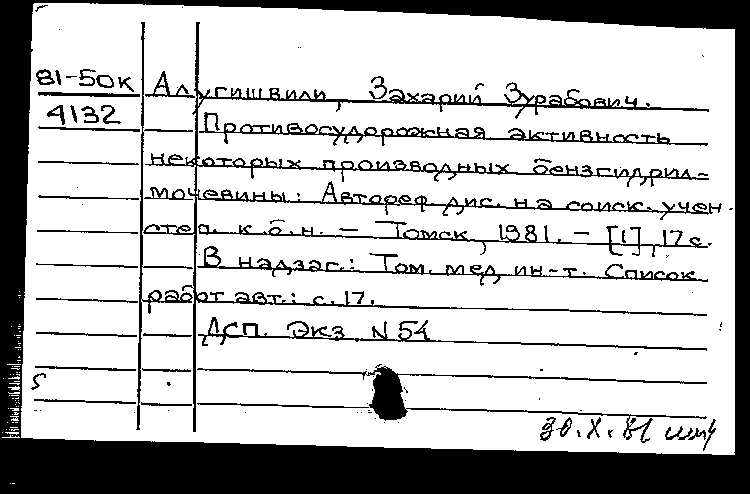 81-50К Алугишвили, Захарий Зурабович.
4132 Противосудорожная активность
некоторых производных бензгидрил-
мочевины: Автореф. дис. на соиск. учен.
степ. к. б. н. — Томск, 1981. — [1], 17 с.
В надзаг.: Том. мед. ин-т. Список
работ авт.: с. 17.
ДСП. Экз. N 54
s
30.X.81